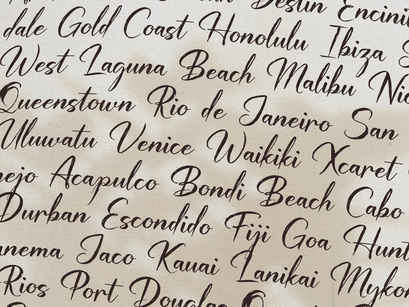 Destin Encini
dale Gold Coast Honolulu Ibiza
West Laguna Beach Malibu Nic
Queenstown Rio de Janeiro San
Uluwatu Venice Waikiki Xcaret
nejo Acapulco Bondi Beach Cabo
Durban Escondido Fiji Goa Hunt
anema Jaco Kauai Lanikai Myko
Rios Port Douglas